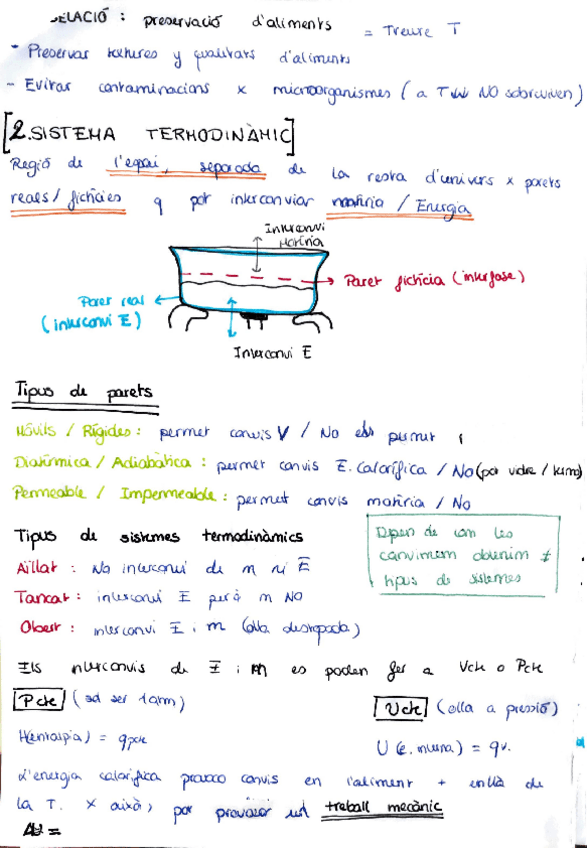 GELACIÓ : preservació d'aliments = Treure T
* Preservar textures y qualitats d'aliments
- Evitar contaminacions x microorganismes (a T NO sobreviuen)
[2. SISTEMA TERMODINÀMIC]
Regió de l'espai, separada de la resta d'univers x parets
reals / fictícies q pot intercanviar matèria / Energia
Intercanvi
Matèria
Paret fictícia (interfase)
Paret real
(intercanvi E)
Intercanvi E
Tipus de parets
Mòvils / Rígides : permet canvis V / No permet
Diatèrmica / Adiabàtica : permet canvis E. Calorífica / No (pot vidre / termo)
Permeable / Impermeable : permet canvis matèria / No
Tipus de sistemes termodinàmics
Aïllat : No intercanvi de m ni E
Tancat : intercanvi E però m NO
Obert : intercanvi E i m (olla destapada)
Depen de com les
canviem obtenim ≠
tipus de sistemes
Els intercanvis de E i m es poden fer a Vcte o Pcte
Pcte (sol ser 1 atm)
Vcte (olla a pressió)
H(entalpia) = qpcte
U (e. interna) = qv.
L'energia calorífica provoca canvis en l'aliment + enllà de
la T. x això, pot provocar un treball mecànic
ΔU =